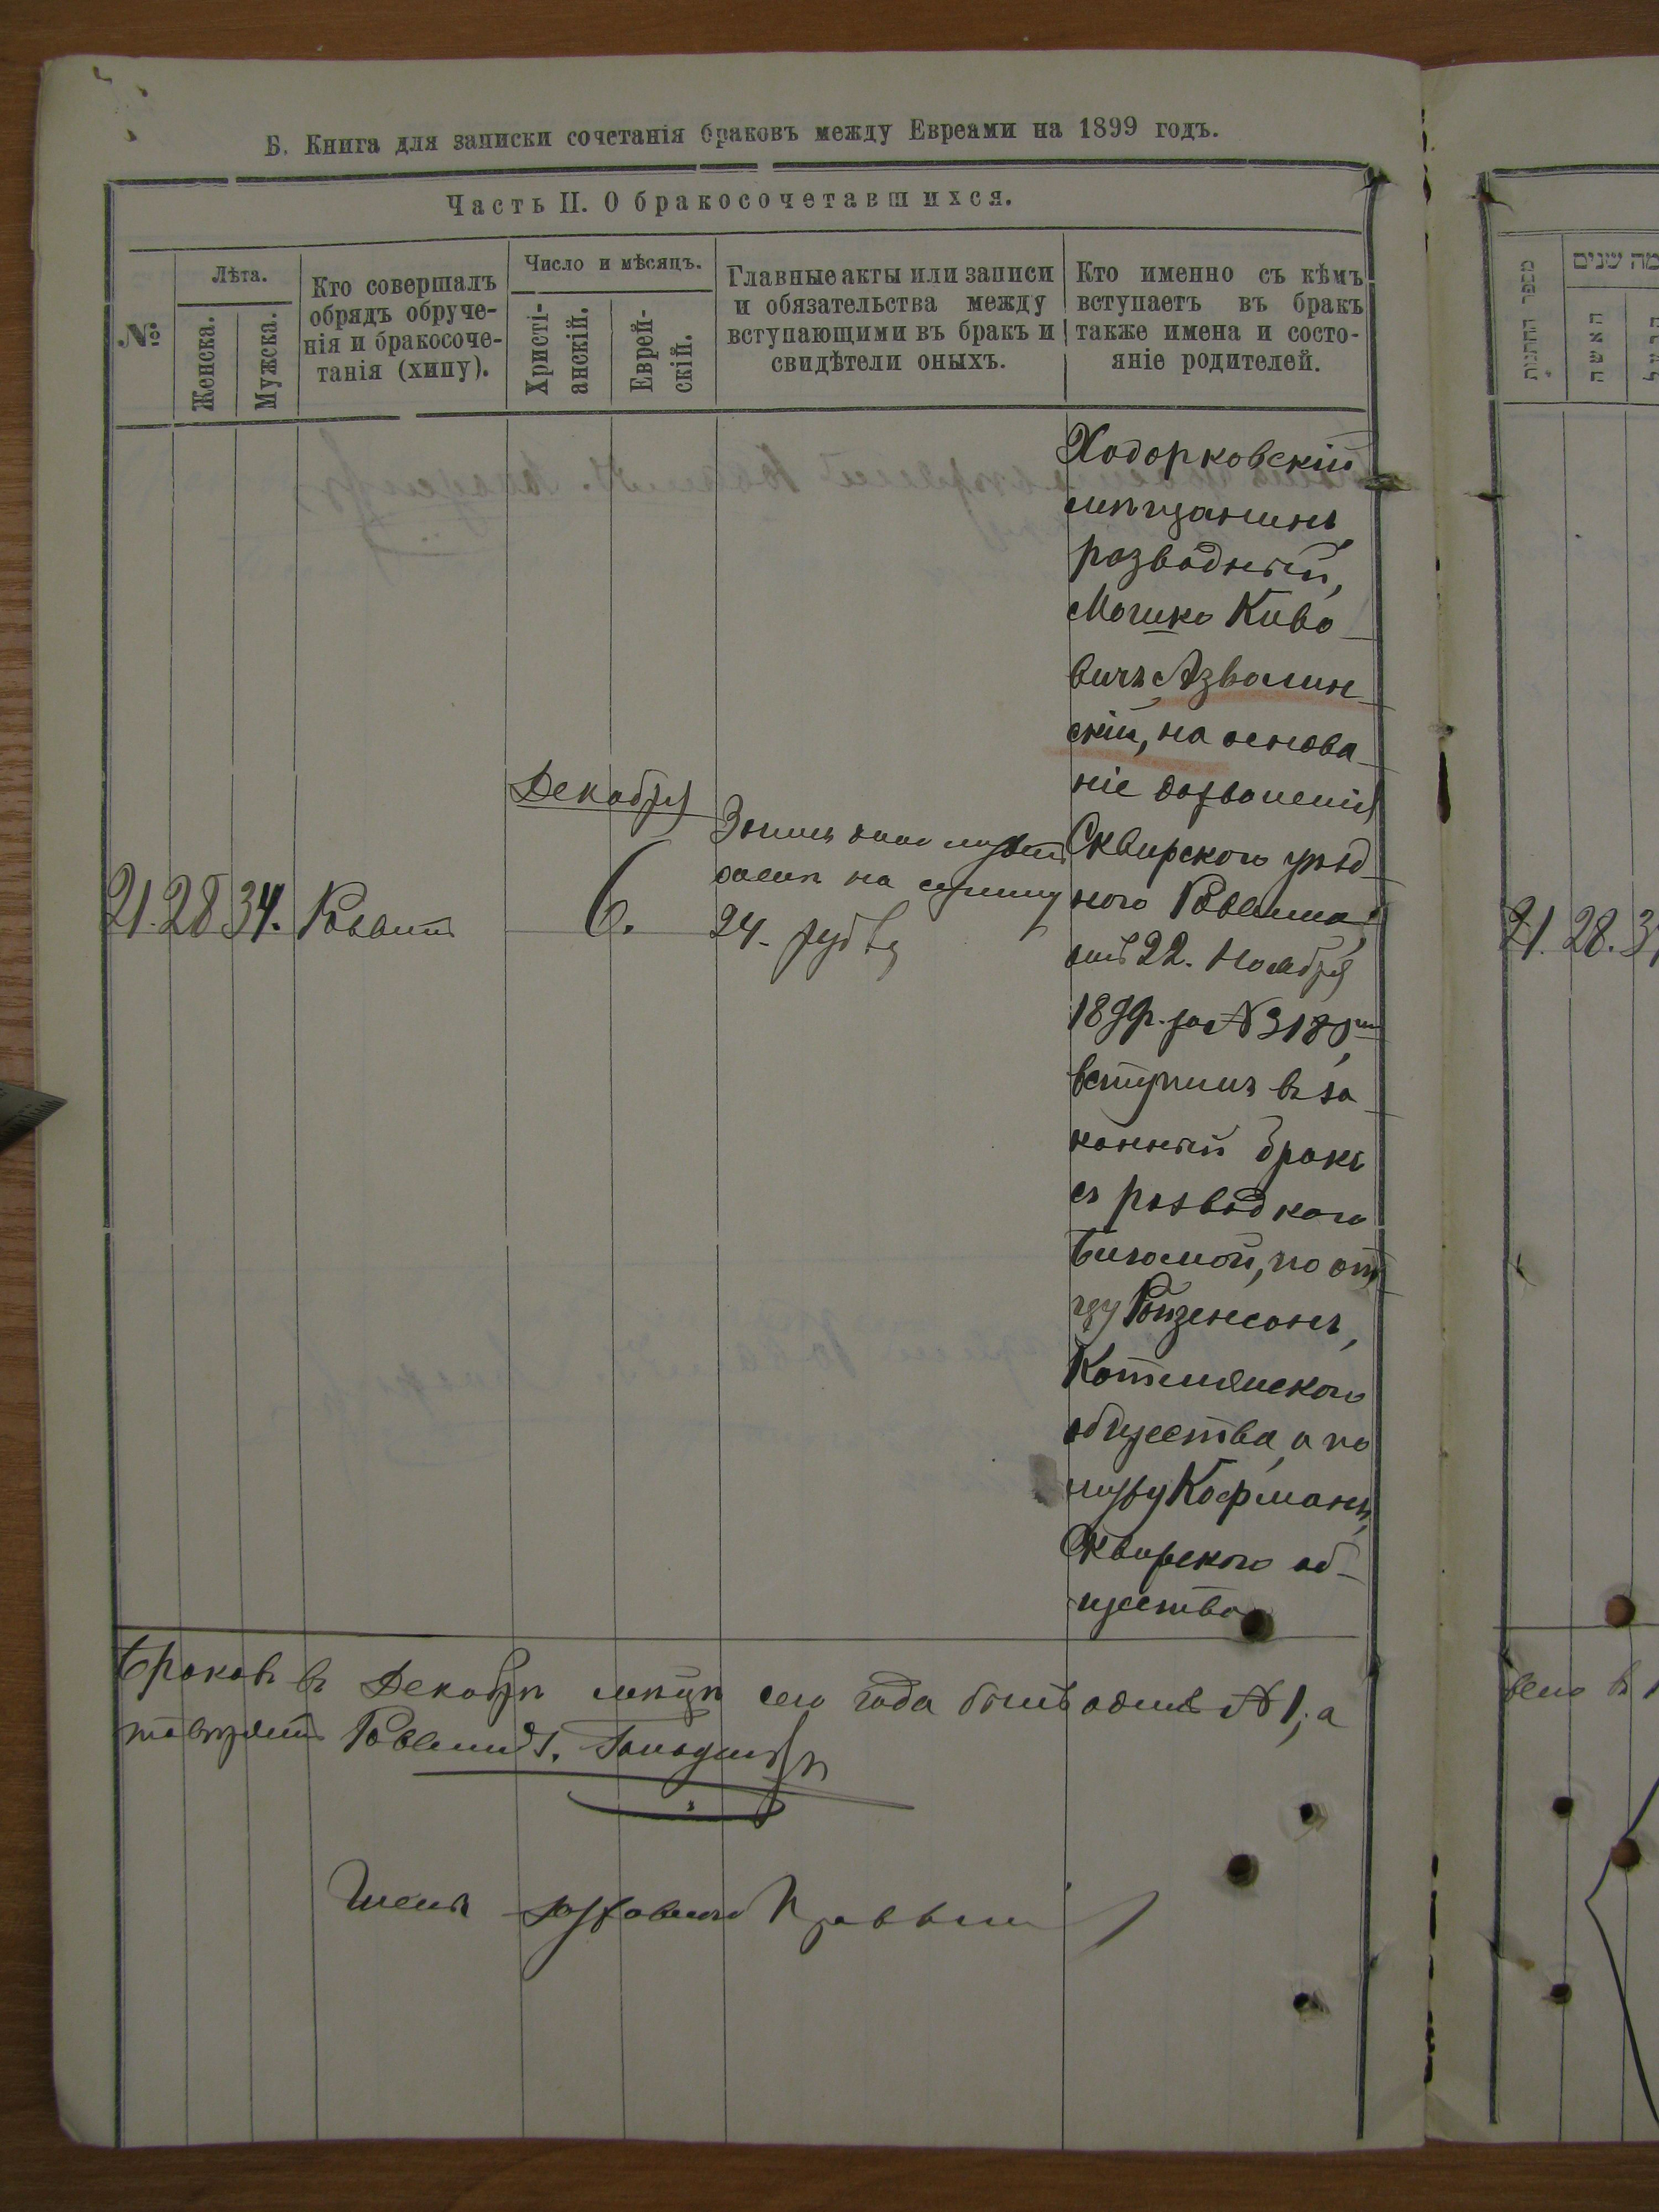 Б. Книга для записки сочетанія браковъ между Евреами на 1899 годъ.
Часть II. О бракосочетавшихся.
№
Лѣта.
Женска.
Мужска.
Кто совершалъ
обрядъ обруче-
нія и бракосоче-
танія (хипу).
Число и мѣсяцъ.
Христі-
анскій.
Еврей-
скій.
Главные акты или записи
и обязательства между
вступающими въ бракъ и
свидѣтели оныхъ.
Кто именно съ кѣмъ
вступаетъ въ бракъ
также имена и состо-
яніе родителей.
21. 28 34. Раввинъ
Декабря
6.
Запись дана
на сумму
24. руб
Ходорковскій
мѣщанинъ,
разводный,
Мошко Киво-
вичъ Азвалин-
скій, на основа-
ніе дозволенія
Сквирскаго уѣзд-
наго Раввина,
отъ 22. Ноября
1899. за №
вступилъ въ за-
конный бракъ
съ разводкою
по от-
цу Ройзенсонъ,
общества, а по
мужу Кофманъ,
Сквирскаго об-
щества
Браковъ въ Декабрѣ мѣсяцѣ сего года былъ одинъ № 1, а
Раввинъ
Членъ
מספר החתונות
מה שנים
האשה
21. 28. 3